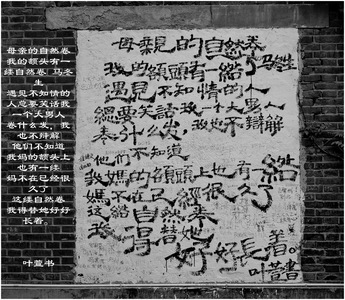 母亲的自然卷
我的额头有一
绺自然卷 马冬
生
遇见不知情的
人总要笑话我
一个大男人
卷什么发，我
也不辩解
他们不知道
我妈的额头上
也有一绺
妈不在已经很
久了
这绺自然卷
我得替她好好
长着。
叶萱书
母親的自然卷
我的額頭有一綹 马冬生
遇見不知情的人
總要笑話我一个大男人
卷什么发 我也不辯解
他们不知道
我媽的額頭上也有一綹
媽不在已經很久了
這綹自然卷
我得替她
好好長着。
叶萱書